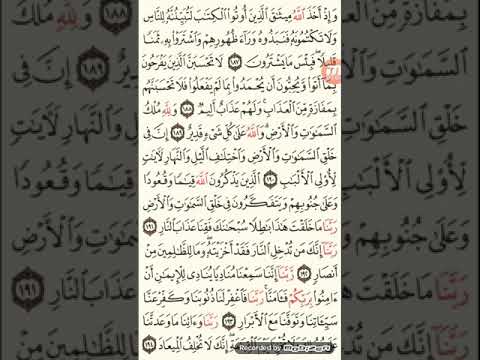 وَإِذْ أَخَذَ ٱللَّهُ مِيثَٰقَ ٱلَّذِينَ أُوتُوا۟ ٱلْكِتَٰبَ لَتُبَيِّنُنَّهُۥ لِلنَّاسِ
وَلَا تَكْتُمُونَهُۥ فَنَبَذُوهُ وَرَآءَ ظُهُورِهِمْ وَٱشْتَرَوْا۟ بِهِۦ ثَمَنًا
قَلِيلًا فَبِئْسَ مَا يَشْتَرُونَ ١٨٧ لَا تَحْسَبَنَّ ٱلَّذِينَ يَفْرَحُونَ
بِمَآ أَتَوا۟ وَّيُحِبُّونَ أَن يُحْمَدُوا۟ بِمَا لَمْ يَفْعَلُوا۟ فَلَا تَحْسَبَنَّهُم
بِمَفَازَةٍ مِّنَ ٱلْعَذَابِ وَلَهُمْ عَذَابٌ أَلِيمٌ ١٨٨ وَلِلَّهِ مُلْكُ
ٱلسَّمَٰوَٰتِ وَٱلْأَرْضِ وَٱللَّهُ عَلَىٰ كُلِّ شَىْءٍ قَدِيرٌ ١٨٩ إِنَّ فِى
خَلْقِ ٱلسَّمَٰوَٰتِ وَٱلْأَرْضِ وَٱخْتِلَٰفِ ٱلَّيْلِ وَٱلنَّهَارِ لَءَايَٰتٍ
لِّأُو۟لِى ٱلْأَلْبَٰبِ ١٩٠ ٱلَّذِينَ يَذْكُرُونَ ٱللَّهَ قِيَٰمًا وَقُعُودًا
وَعَلَىٰ جُنُوبِهِمْ وَيَتَفَكَّرُونَ فِى خَلْقِ ٱلسَّمَٰوَٰتِ وَٱلْأَرْضِ
رَبَّنَا مَا خَلَقْتَ هَٰذَا بَٰطِلًا سُبْحَٰنَكَ فَقِنَا عَذَابَ ٱلنَّارِ ١٩١
رَبَّنَآ إِنَّكَ مَن تُدْخِلِ ٱلنَّارَ فَقَدْ أَخْزَيْتَهُۥ وَمَا لِلظَّٰلِمِينَ مِنْ
أَنصَارٍ ١٩٢ رَّبَّنَآ إِنَّنَا سَمِعْنَا مُنَادِيًا يُنَادِى لِلْإِيمَٰنِ أَنْ
ءَامِنُوا۟ بِرَبِّكُمْ فَـَٔامَنَّا رَبَّنَا فَٱغْفِرْ لَنَا ذُنُوبَنَا وَكَفِّرْ عَنَّا
سَيِّـَٔاتِنَا وَتَوَفَّنَا مَعَ ٱلْأَبْرَارِ ١٩٣ رَبَّنَا وَءَاتِنَا مَا وَعَدتَّنَا
إِنَّكَ لَا تُخْلِفُ ٱلْمِيعَادَ ١٩٤
Recorded by